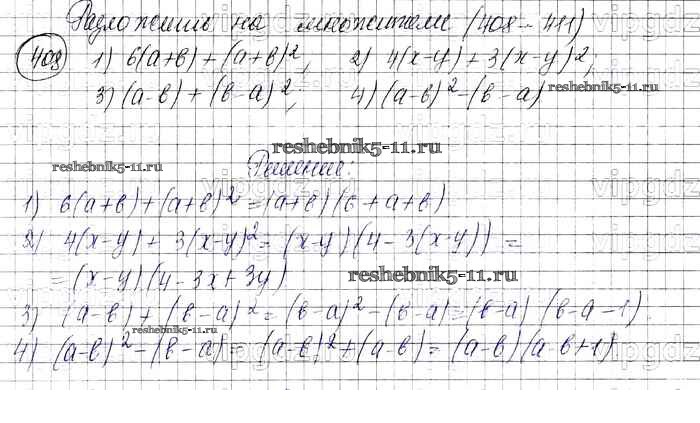 Разложить на множители (408 - 411)
408 1) 6(a+в) + (a+в)², 2) 4(x-y) + 3(x-y)²,
3) (a-в) + (в-a)², 4) (a-в)² - (в-a)
reshebnik5-11.ru
reshebnik5-11.ru
reshebnik5-11.ru
Решение:
vipgdz
1) 6(a+в) + (a+в)² = (a+в)(6+a+в)
2) 4(x-y) + 3(x-y)² = (x-y)(4-3(x-y)) =
= (x-y)(4-3x+3y)
reshebnik5-11.ru
3) (a-в) + (в-a)² = (в-a)² - (в-a) = (в-a)(в-a-1)
reshebnik5-11.ru
4) (a-в)² - (в-a) = (a-в)² + (a-в) = (a-в)(a-в+1)